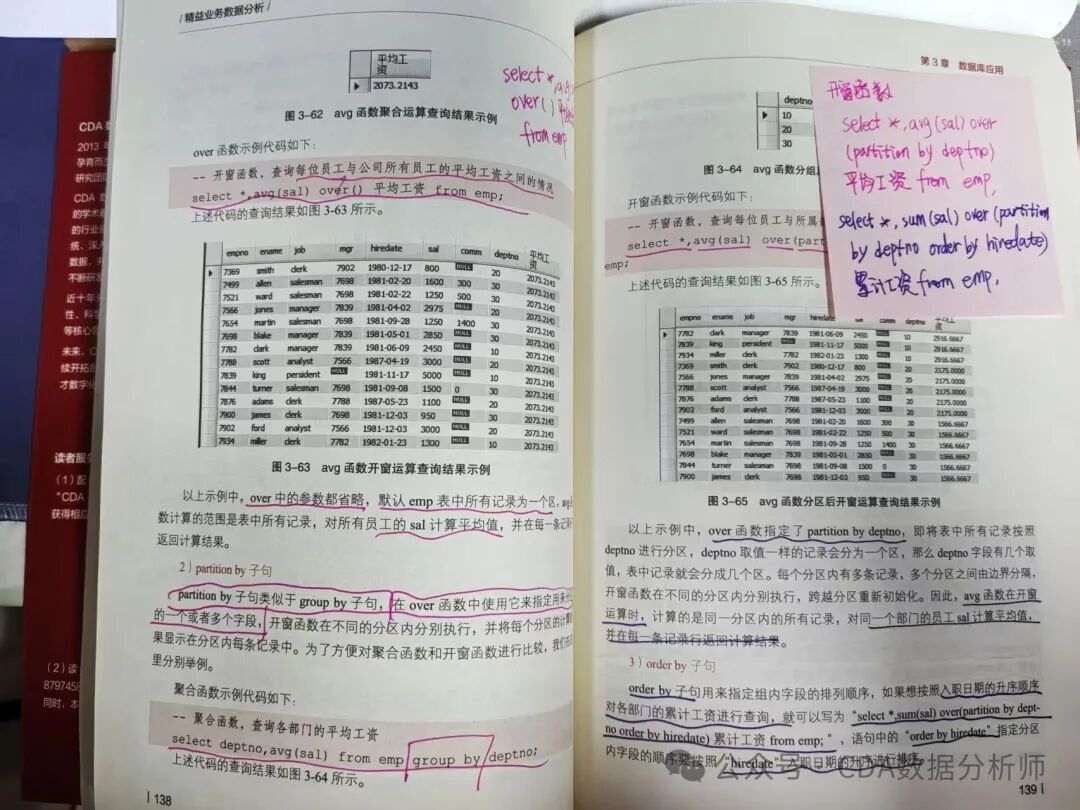 / 精益业务数据分析 /
平均工资
2073.2143
图 3-62 avg 函数聚合运算查询结果示例
select *,
over()
from emp
over 函数示例代码如下：
-- 开窗函数，查询每位员工与公司所有员工的平均工资之间的情况
select *,avg(sal) over() 平均工资 from emp;
上述代码的查询结果如图 3-63 所示。
empno ename job mgr hiredate sal comm deptno 平均工资
7369 smith clerk 7902 1980-12-17 800 NULL 20 2073.2143
7499 allen salesman 7698 1981-02-20 1600 300 30 2073.2143
7521 ward salesman 7698 1981-02-22 1250 500 30 2073.2143
7566 jones manager 7839 1981-04-02 2975 NULL 20 2073.2143
7654 martin salesman 7698 1981-09-28 1250 1400 30 2073.2143
7698 blake manager 7839 1981-05-01 2850 NULL 30 2073.2143
7782 clark manager 7839 1981-06-09 2450 NULL 10 2073.2143
7788 scott analyst 7566 1987-04-19 3000 NULL 20 2073.2143
7839 king persident NULL 1981-11-17 5000 NULL 10 2073.2143
7844 turner salesman 7698 1981-09-08 1500 0 30 2073.2143
7876 adams clerk 7788 1987-05-23 1100 NULL 20 2073.2143
7900 james clerk 7698 1981-12-03 950 NULL 30 2073.2143
7902 ford analyst 7566 1981-12-03 3000 NULL 20 2073.2143
7934 miller clerk 7782 1982-01-23 1300 NULL 10 2073.2143
图 3-63 avg 函数开窗运算查询结果示例
以上示例中，over 中的参数都省略，默认 emp 表中所有记录为一个区，avg
数计算的范围是表中所有记录，对所有员工的 sal 计算平均值，并在每一条记
返回计算结果。
2）partition by 子句
partition by 子句类似于 group by 子句，在 over 函数中使用它来指定用来分
的一个或者多个字段，开窗函数在不同的分区内分别执行，并将每个分区的计算
果显示在分区内每条记录中。为了方便对聚合函数和开窗函数进行比较，我们在
里分别举例。
聚合函数示例代码如下：
-- 聚合函数，查询各部门的平均工资
select deptno,avg(sal) from emp group by deptno;
上述代码的查询结果如图 3-64 所示。
138
第 3 章 数据库应用
deptno
10
20
30
图 3-64 avg 函数分组
开窗函数示例代码如下：
-- 开窗函数，查询每位员工与所属
select *,avg(sal) over(part
emp;
上述代码的查询结果如图 3-65 所示。
开窗函数
select *, avg(sal) over
(partition by deptno)
平均工资 from emp,
select *, sum(sal) over (partition
by deptno order by hiredate)
累计工资 from emp,
empno ename job mgr hiredate sal comm deptno 平均工资
7782 clark manager 7839 1981-06-09 2450 NULL 10 2916.6667
7839 king persident NULL 1981-11-17 5000 NULL 10 2916.6667
7934 miller clerk 7782 1982-01-23 1300 NULL 10 2916.6667
7369 smith clerk 7902 1980-12-17 800 NULL 20 2175.0000
7566 jones manager 7839 1981-04-02 2975 NULL 20 2175.0000
7788 scott analyst 7566 1987-04-19 3000 NULL 20 2175.0000
7876 adams clerk 7788 1987-05-23 1100 NULL 20 2175.0000
7902 ford analyst 7566 1981-12-03 3000 NULL 20 2175.0000
7499 allen salesman 7698 1981-02-20 1600 300 30 1566.6667
7521 ward salesman 7698 1981-02-22 1250 500 30 1566.6667
7654 martin salesman 7698 1981-09-28 1250 1400 30 1566.6667
7698 blake manager 7839 1981-05-01 2850 NULL 30 1566.6667
7844 turner salesman 7698 1981-09-08 1500 0 30 1566.6667
7900 james clerk 7698 1981-12-03 950 NULL 30 1566.6667
图 3-65 avg 函数分区后开窗运算查询结果示例
以上示例中，over 函数指定了 partition by deptno，即将表中所有记录按照
deptno 进行分区，deptno 取值一样的记录会分为一个区，那么 deptno 字段有几个取
值，表中记录就会分成几个区。每个分区内有多条记录，多个分区之间由边界分隔，
开窗函数在不同的分区内分别执行，跨越分区重新初始化。因此，avg 函数在开窗
运算时，计算的是同一分区内的所有记录，对同一个部门的员工 sal 计算平均值，
并在每一条记录行返回计算结果。
3）order by 子句
order by 子句用来指定组内字段的排列顺序，如果想按照入职日期的升序顺序
对各部门的累计工资进行查询，就可以写为“select *,sum(sal) over(partition by dept-
no order by hiredate) 累计工资 from emp; ”，语句中的“order by hiredate”指定分区
内字段的顺序要按照“hiredate”入职日期的升序进行排序。
139
公众号 · CDA数据分析师
CDA 数
2013 年
孕育而生
研究团队
CDA 数
的学术
的行业
统、深入
数据，并
不断研发
近十年
性、科学
等核心
未来，C
续开拓
才数字化
读者服务
（1）配
“CDA
获得相应
（2）读
8797458
同时，本